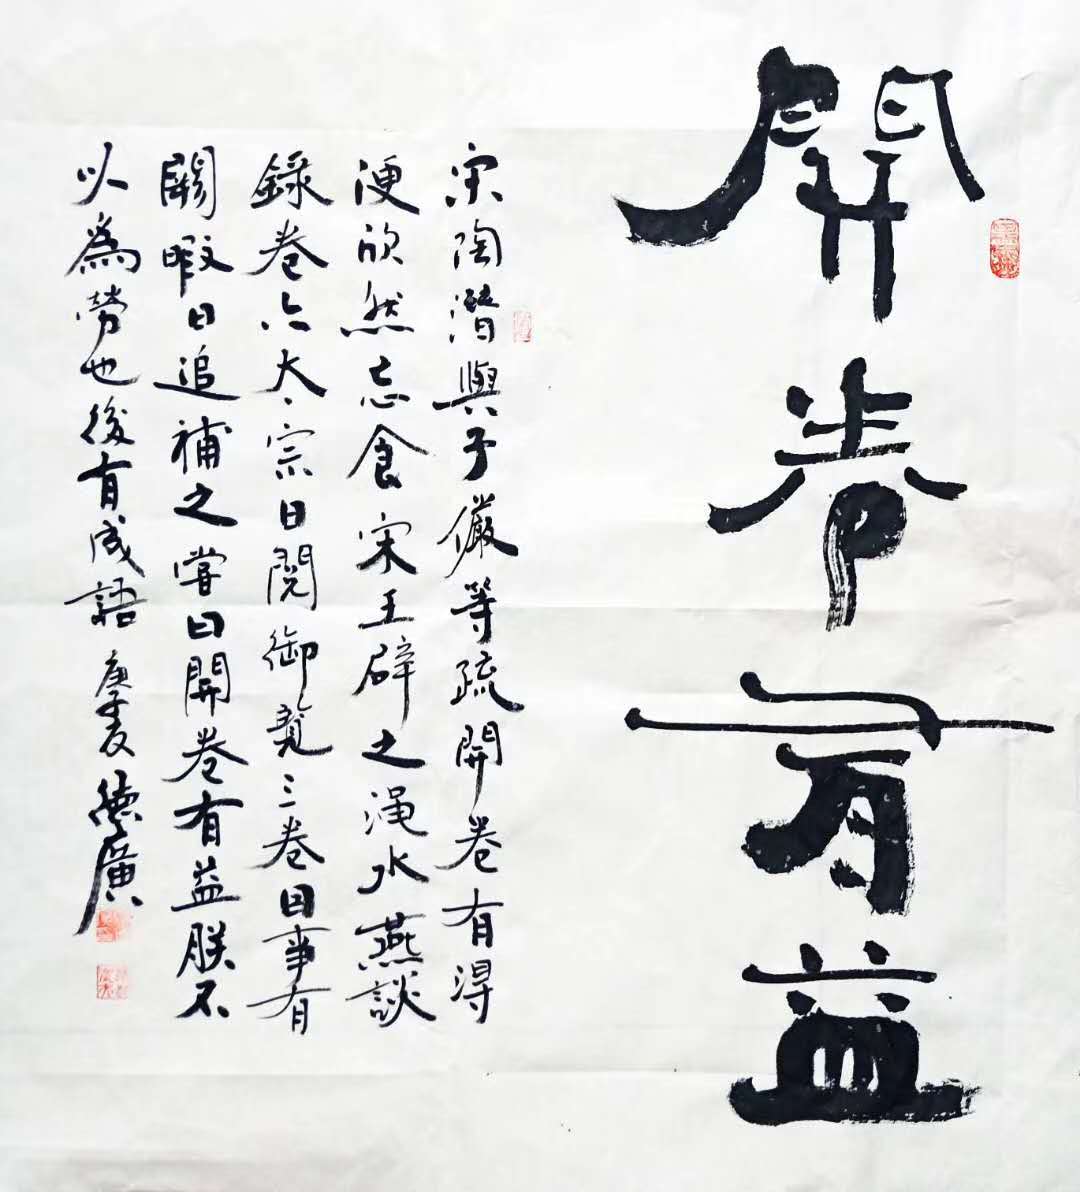 開卷有益
宋陶潛與子儼等疏開卷有得
便欣然忘食宋王辟之澠水燕談
録卷六太宗日閱御覽三卷因事有
闕暇日追補之嘗曰開卷有益朕不
以為勞也後有成語 庚子夏 德廣